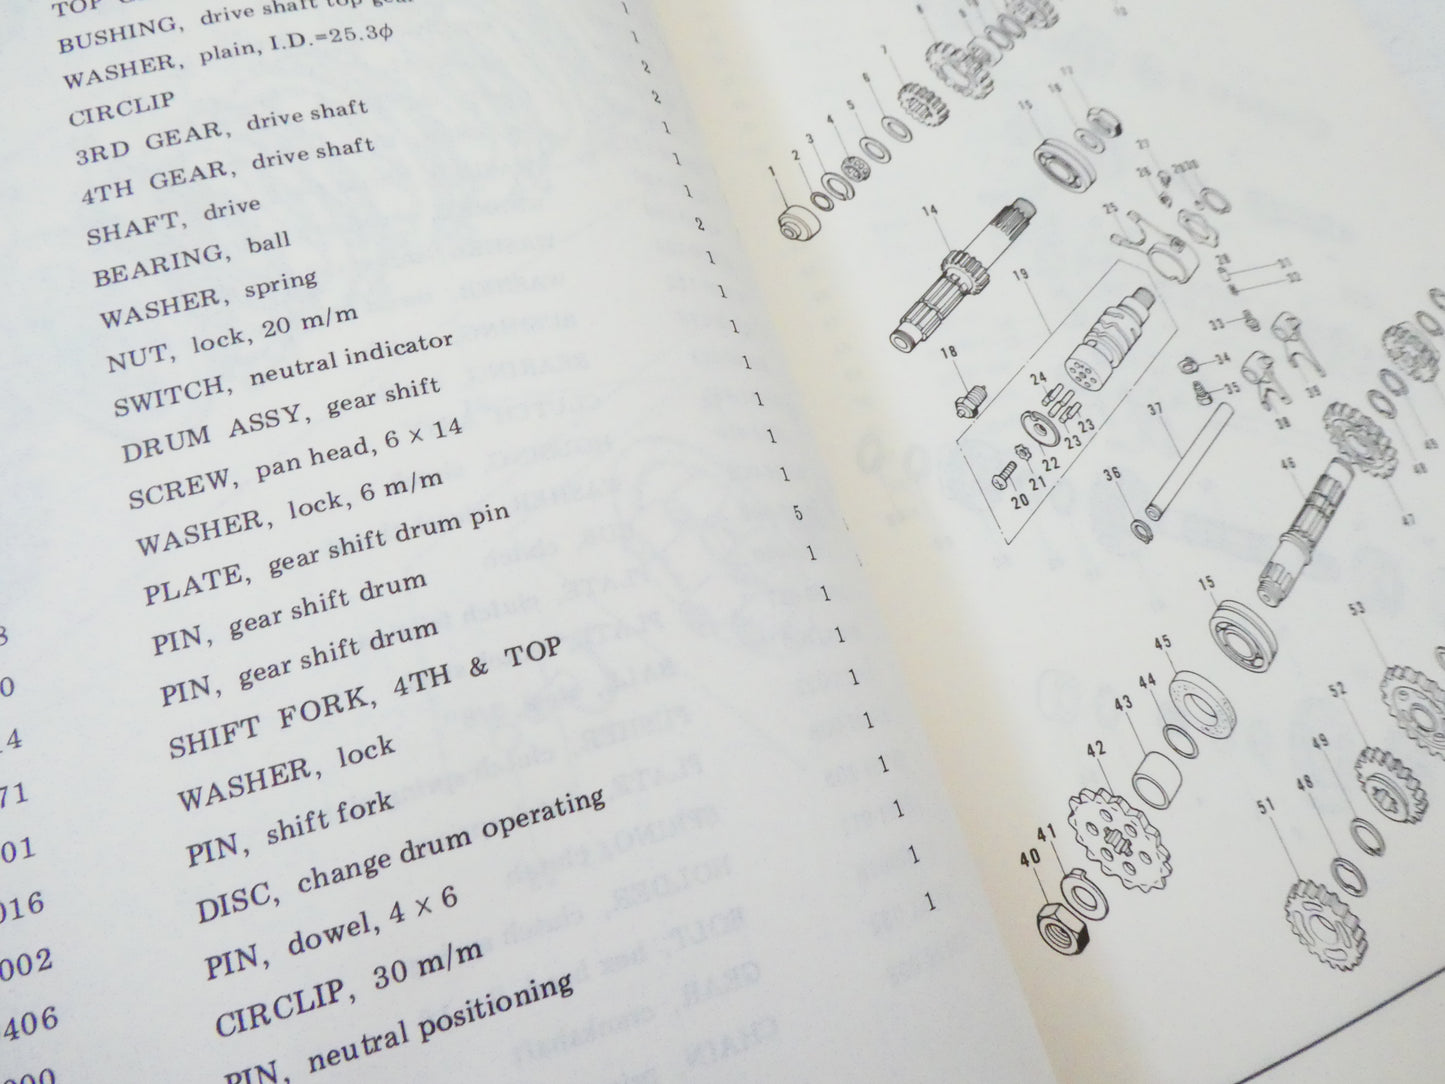 TOP
BUSHING, drive shaft top gear
WASHER, plain, I.D.=25.3φ 1
CIRCLIP 1
3RD GEAR, drive shaft 2
4TH GEAR, drive shaft 2
SHAFT, drive 1
BEARING, ball 1
WASHER, spring 1
NUT, lock, 20 m/m 2
SWITCH, neutral indicator 1
DRUM ASSY, gear shift 1
SCREW, pan head, 6 × 14 1
WASHER, lock, 6 m/m 1
PLATE, gear shift drum pin 1
PIN, gear shift drum 1
PIN, gear shift drum 1
SHIFT FORK, 4TH & TOP 5
WASHER, lock 1
PIN, shift fork 1
DISC, change drum operating 1
PIN, dowel, 4 × 6 1
CIRCLIP, 30 m/m 1
PIN, neutral positioning 1
1
1
1
3
0
14
71
01
016
002
406
000
1 2 3 4 5 6 7
14
15 16 17
18 19
20 21 22 23 23 24
25
33 34 35
36 37
38
46
15
40 41 42 43 44 45
47
51 48 49 52 53